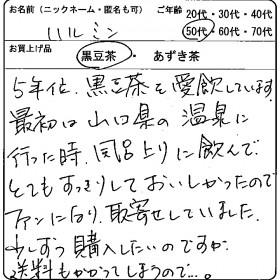 お名前(ニックネーム・匿名も可) ご年齢 20代・30代・40代
ハルミン 50代・60代・70代
お買上げ品 黒豆茶・あずき茶
5年位、黒豆茶を愛飲しています。
最初は山口県の温泉に
行った時、風呂上りに飲んで
とてもすっきりしておいしかったので
ファンになり、取寄せしていました。
少しずつ購入したいのですが、
送料もかかってしまうので…。